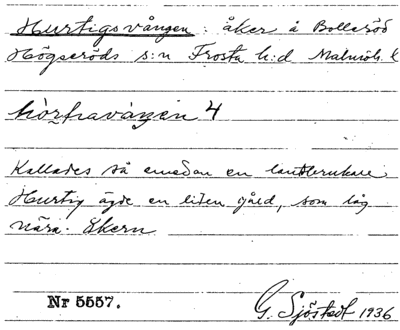 Hurtigsvången: åker å Bolleröd
Högseröds s:n Frosta h:d Malmöh. l
4
Kallades så emedan en lantbrukare
Hurtig ägde en liten gård, som låg
nära åkern
Nr 5557.
G. Sjöstedt 1936